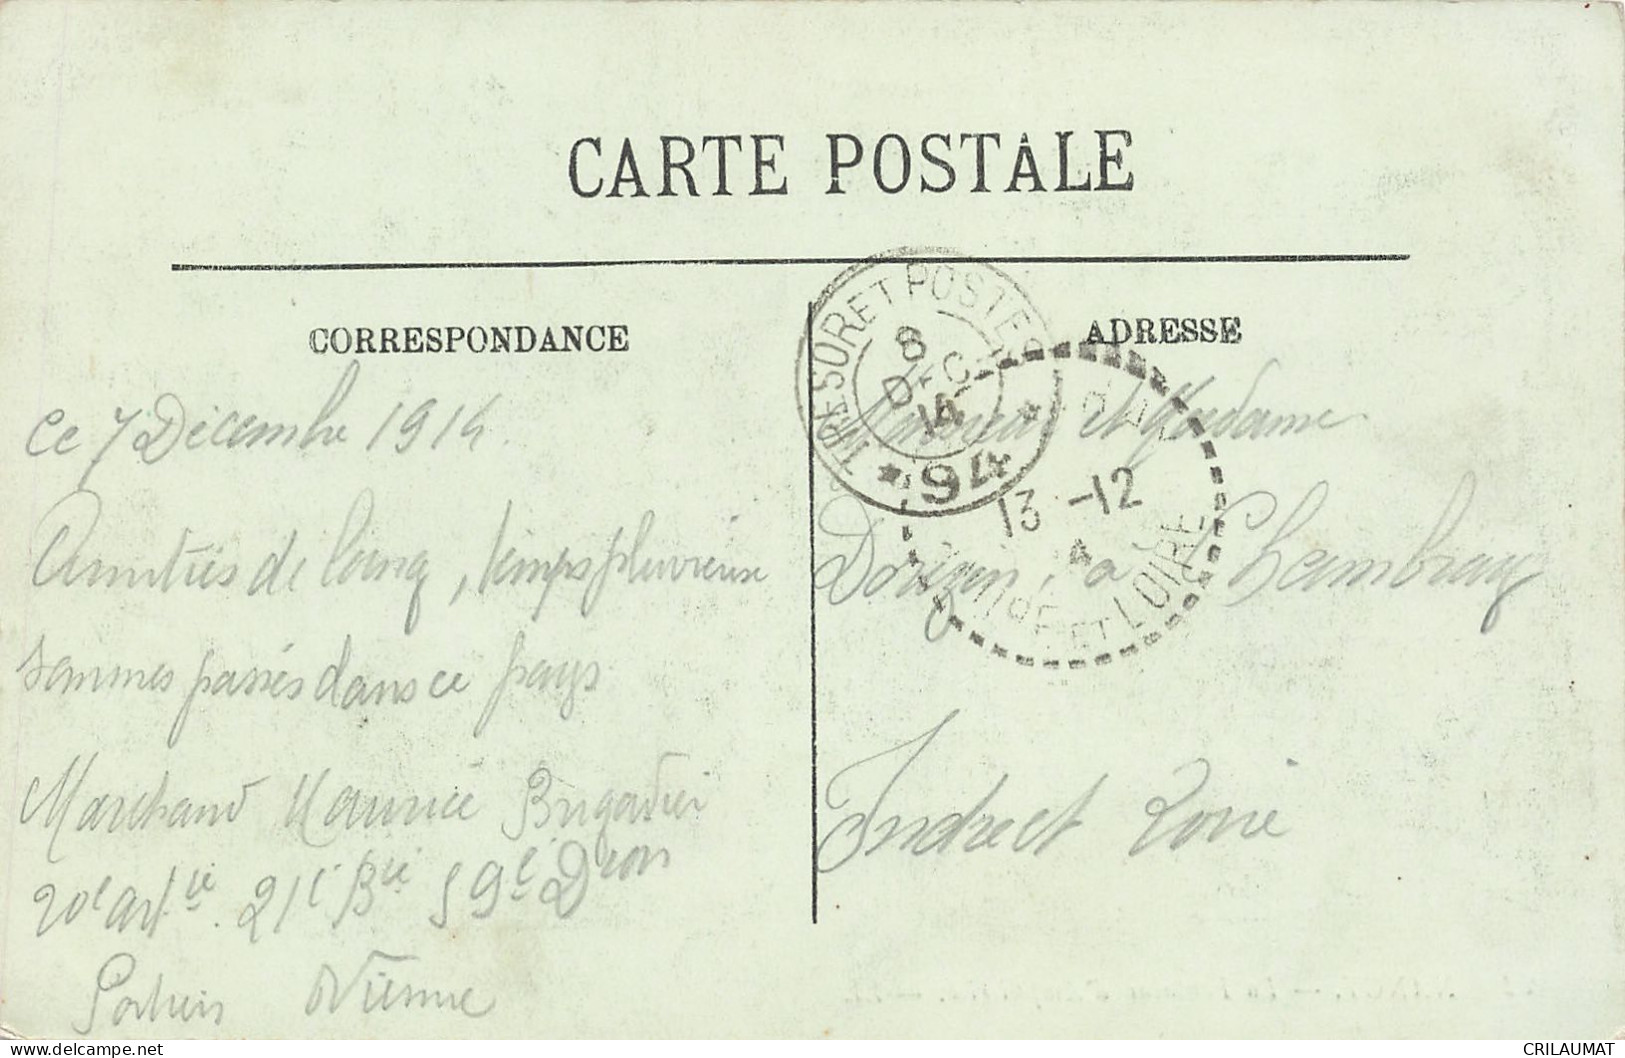 CARTE POSTALE
CORRESPONDANCE
ce 7 Décembre 1914.
Amitiés de Camp, temps pluvieuse
sommes passés dans ce pays
Marchand Maurice Brigadier
20e artie. 21e Bie 59e Dion
Poitiers Vienne
ADRESSE
Monsieur et Madame
à Chambray
Indre et Loire
TRESOR ET POSTES
8
DEC
14
* 94 *
13 -12
INDRE ET LOIRE
CRILAUMAT